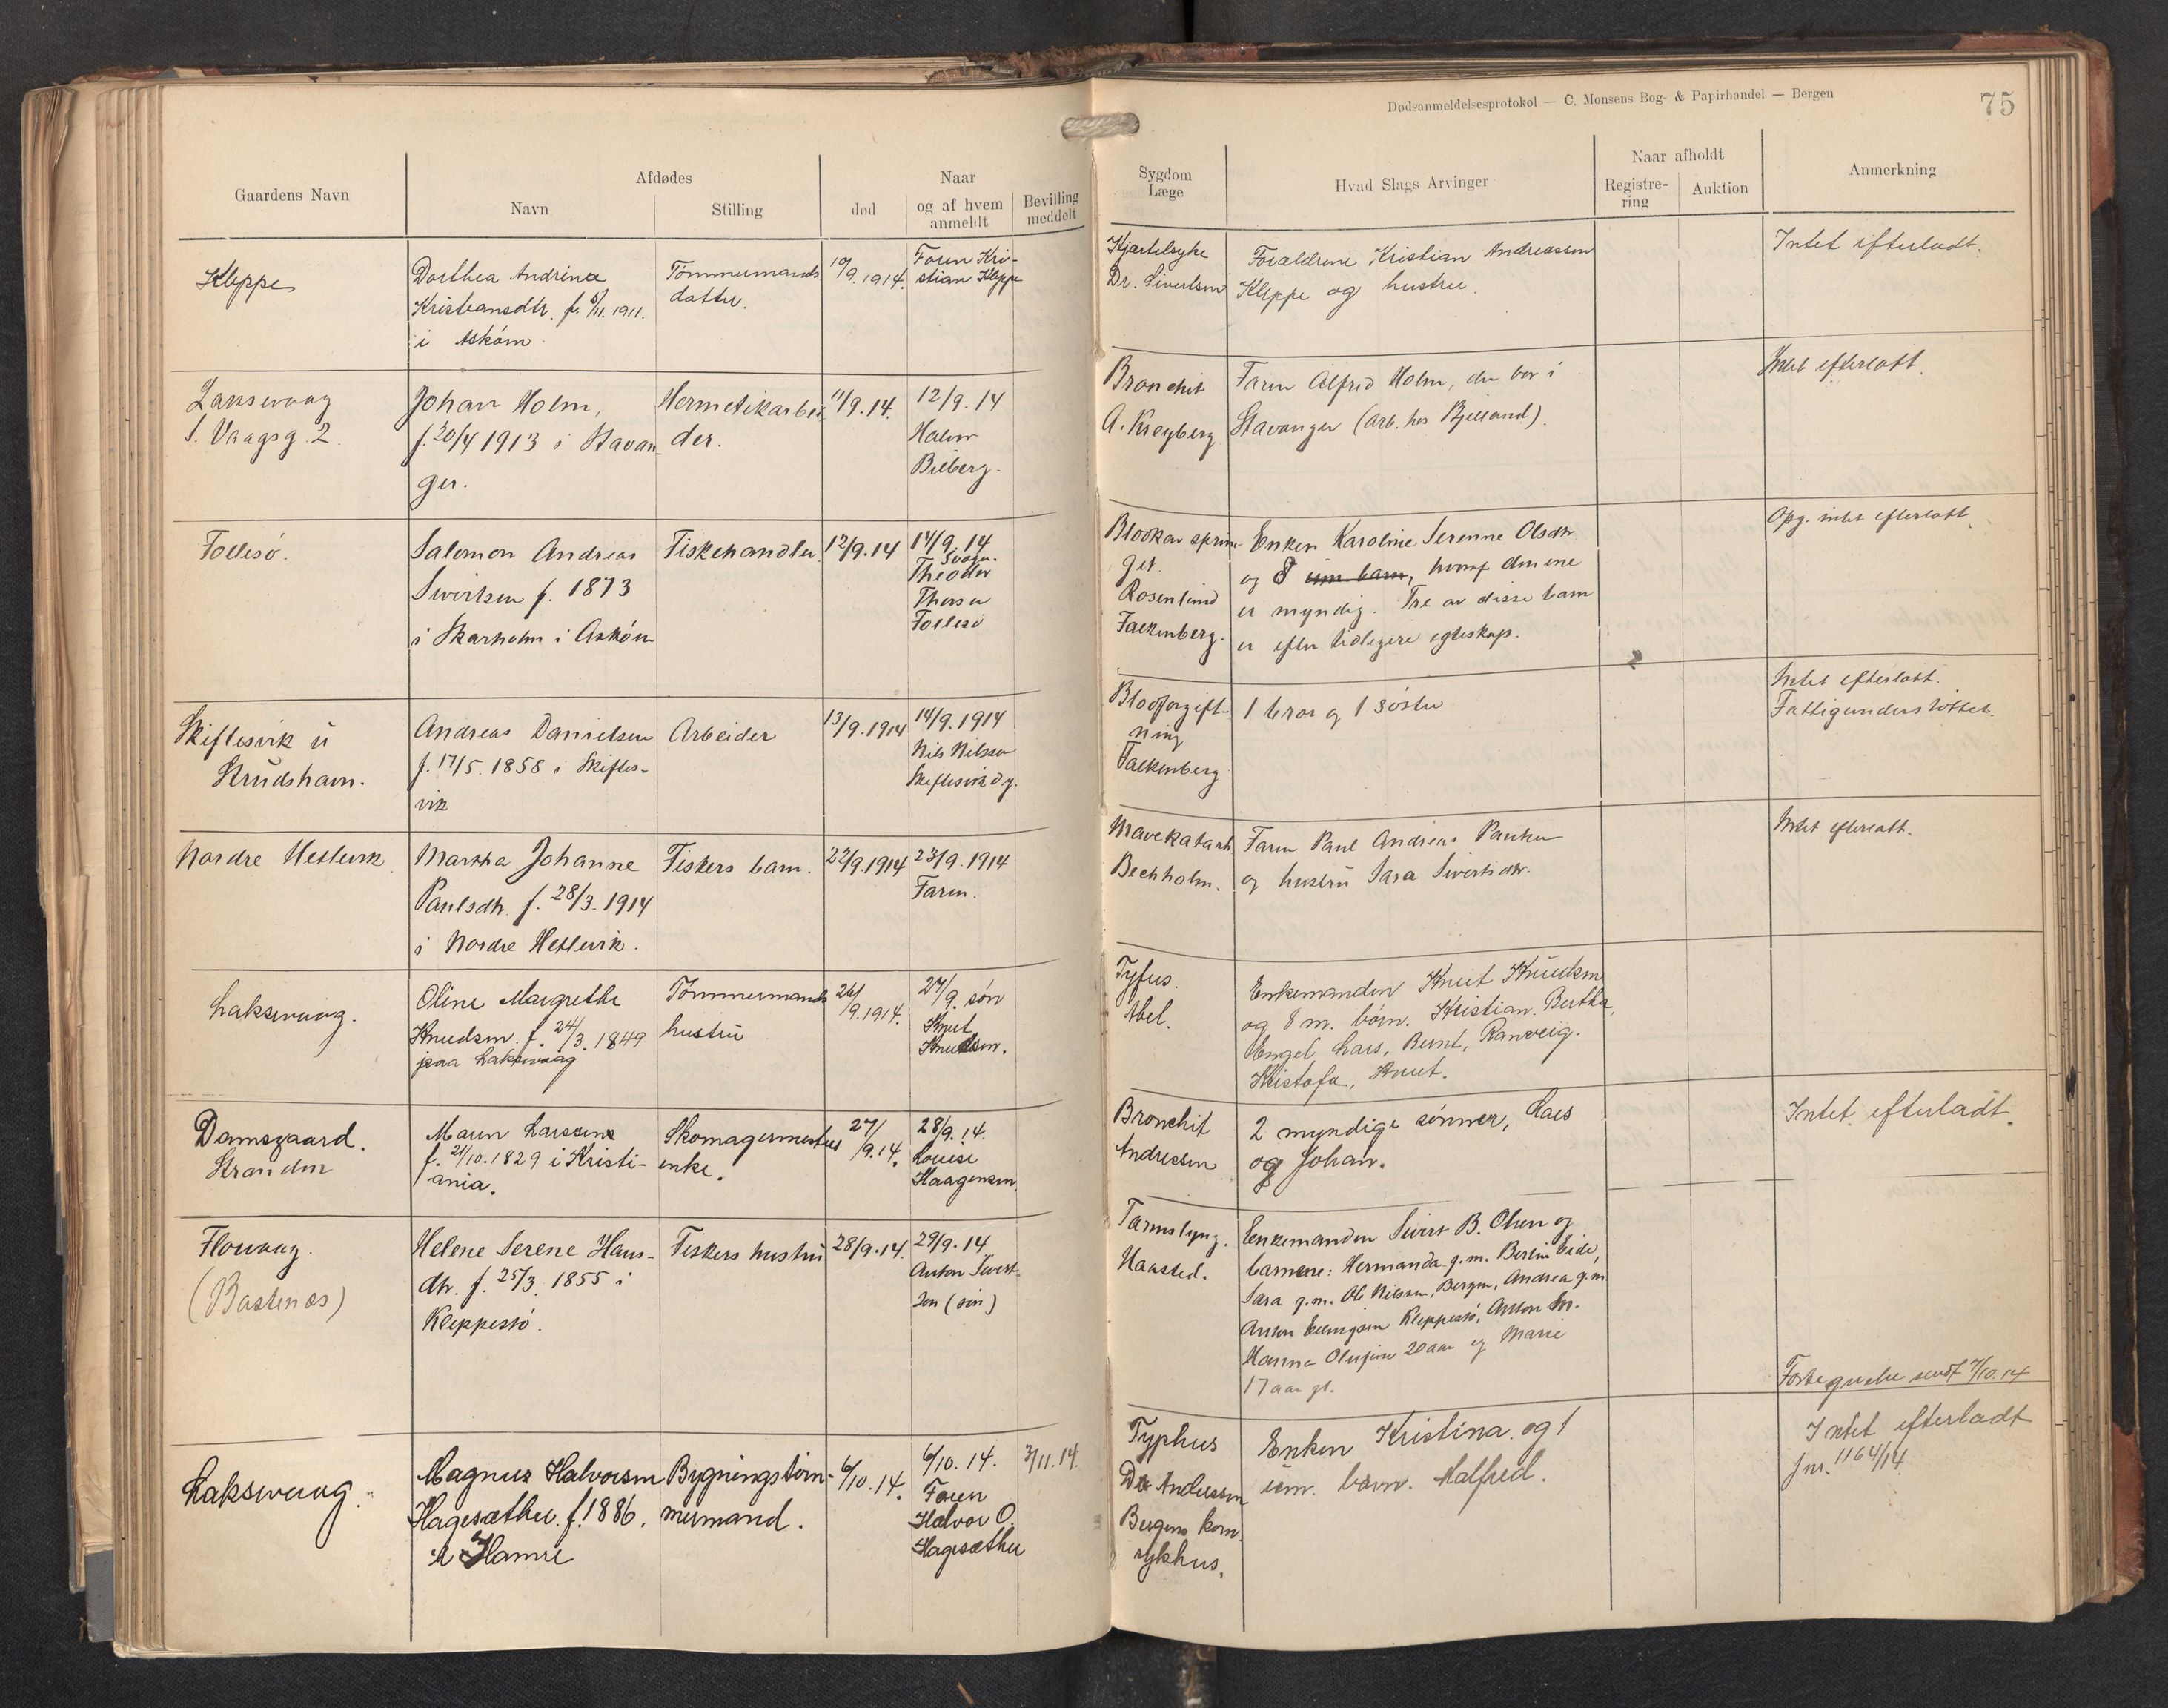 Dødsanmeldelsesprotokol — C. Monsens Bog- & Papirhandel — Bergen
75
Gaardens Navn
Afdødes
Navn
Stilling
død
Naar
og af hvem
anmeldt
Bevilling
meddelt
Sygdom
Læge
Hvad Slags Arvinger
Naar afholdt
Registre-
ring
Auktion
Anmerkning
Kleppe
Dorthea Andrine
Kristiansdtr. f. 5/11. 1911.
i Askøen
Tømmermands
datter.
10/9. 1914.
Faren Kri-
stian Kleppe
Kjertelsyke
Dr. Sivertsen
Forældrene Kristian Andreassen
Kleppe og hustru.
Intet efterladt.
Laksevaag
S. Vaagsg. 2.
Johan Holm,
f. 30/4 1913 i Stavan-
ger.
Hermetikarbei-
der.
11/9. 14.
12/9. 14
Halvor
Bieberg.
Bronchit
A. Kreyberg
Faren Alfred Holm, der bor i
Stavanger (arb. hos Bjelland).
Intet efterlatt.
Follesø.
Salomon Andreas
Sivertsen f. 1873
i Skarholm i Askøen
Fiskehandler
12/9. 14
14/9. 14
Svoger.
Theodor
Thorsen
Follesø
Blodkar sprun-
get.
Rosenlund
Falkenberg.
Enken Karoline Serenne Olsdtr.
og 8 um. barn, hvoraf den ene
er myndig. Tre av disse barn
er efter tidligere egteskap.
Opg. intet efterlatt.
Skiflesvik i
Strudshavn.
Andreas Danielsen
f. 17/5. 1858 i Skifles-
vik
Arbeider
13/9. 1914
14/9. 1914
Nils Nilssen
Skiflesvik d.y.
Blodforgift-
ning
Falkenberg
1 bror og 1 søster
Intet efterlatt.
Fattigunderstøttet.
Nordre Hetlevik
Martha Johanne
Paulsdtr. f. 28/3. 1914
i Nordre Hetlevik.
Fiskers barn.
22/9. 1914
23/9. 1914
Faren.
Mavekatarrh
Bechholm.
Faren Paul Andreas Paulsen
og hustru Sara Sivertsdtr.
Intet efterlatt.
Laksevaag.
Oline Margrethe
Knudsen. f. 24/3. 1849
paa Laksevaag
Tømmermands
hustru
26/9. 1914.
27/9. søn
Knut
Knudsen.
Tyfus.
Abel.
Enkemanden Knut Knudsen
og 8 m. børn. Kristian. Bertha,
Engel, Lars, Bernt, Ranveig.
Kristofa, Knut.
Damsgaard.
Stranden
Maren Larssens
f. 21/10. 1829 i Kristi-
ania.
Skomagermesters
enke.
27/9. 14.
28/9. 14.
Louise
Haagensen.
Bronchit
Andressen
2 myndige sønner, Lars
og Johan.
Intet efterladt.
Florvaag.
(Bastenes)
Helene Serene Hans-
dtr. f. 25/3. 1855 i
Kleppestø.
Fiskers hustru
28/9. 14.
29/9. 14.
Anton Sivert-
sen (søn)
Tarmslyng.
Haasted.
Enkemanden Sivert B. Olsen og
barnene: Hermanda g.m. Bertin Eide,
Sara g.m. Ole Nilssen, Bergen, Andrea g.m.
Anton Ellingsen Kleppestø, Anton m.
Hanna Olufine 20 aar og Marie
17 aar gl.
sendt 7/10. 14
Laksevaag.
Magnus Halvorsen
Hagesæther. f. 1886.
i Hamre
Bygningstøm-
mermand.
6/10. 14.
6/10. 14.
Faren
Halvor O.
Hagesæther
3/11. 14.
Typhus
Dr Andessen
Bergens kom.
sykhus.
Enken Kristina. og 1
um. barn. Malfred.
Intet efterladt
jnr. 1164/14